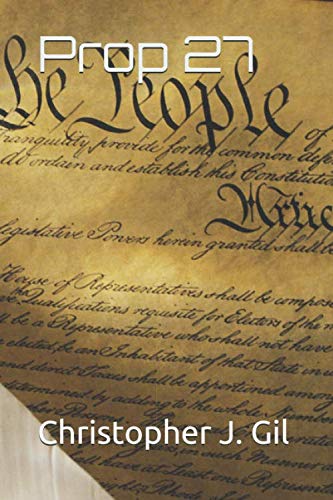 Prop 27
he People
of
ranquility, provide for the common def
do ordain and establish this Constitutio
Artic
egislative Powers herein granted shall be
House of Representatives shall be compos
the Qualifications requisite for Electors of the
ll be a Representative who shall not have
elected, be an Inhabitant of that State in
and direct Taxes shall be apportioned among
termined by adding to the whole Number
Persons
Christopher J. Gil
in such Manner
shall have at Least one Represent